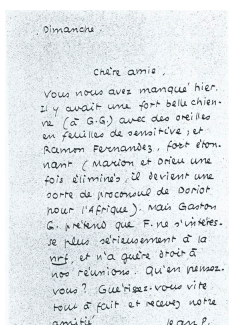 Dimanche.
Chère amie,
Vous nous avez manqué hier.
Il y avait une fort belle chien-
ne (à G.G.) avec des oreilles
en feuilles de sensitive, et
Ramon Fernandez, fort éton-
nant (Marion et Drieu une
fois éliminés, il devient une
sorte de proconsul de Doriot
pour l'Afrique). Mais Gaston
G. prétend que F. ne s'intéres-
se plus sérieusement à la
nrf, et n'a guère droit à
nos réunions. Qu'en pensez-
vous? Guérissez-vous vite
tout à fait et recevez notre
amitié
Jean P.